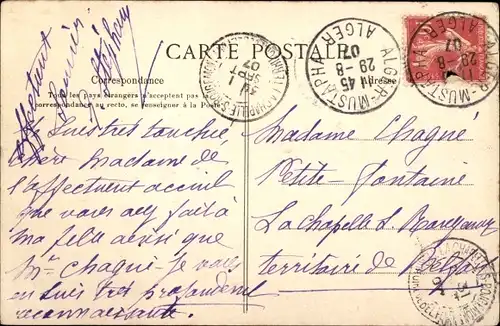 CARTE POSTALE
Correspondance
Adresse
Tous les pays étrangers n'acceptent pas la
correspondance au recto, se renseigner à la Poste
Je suis très touchée,
chère Madame de
l'affectueux accueil
que vous avez fait à
ma fille ainsi que
Mr Chagué - je vous
en suis très profondément
reconnaissante.
affectueux
Madame Chagué
Petite-Fontaine
La Chapelle s. Rougemont
territoire de Belfort
MUSTAPHA
ALGER
45
29-8
07
MUSTAPHA
ALGER
29-8
07